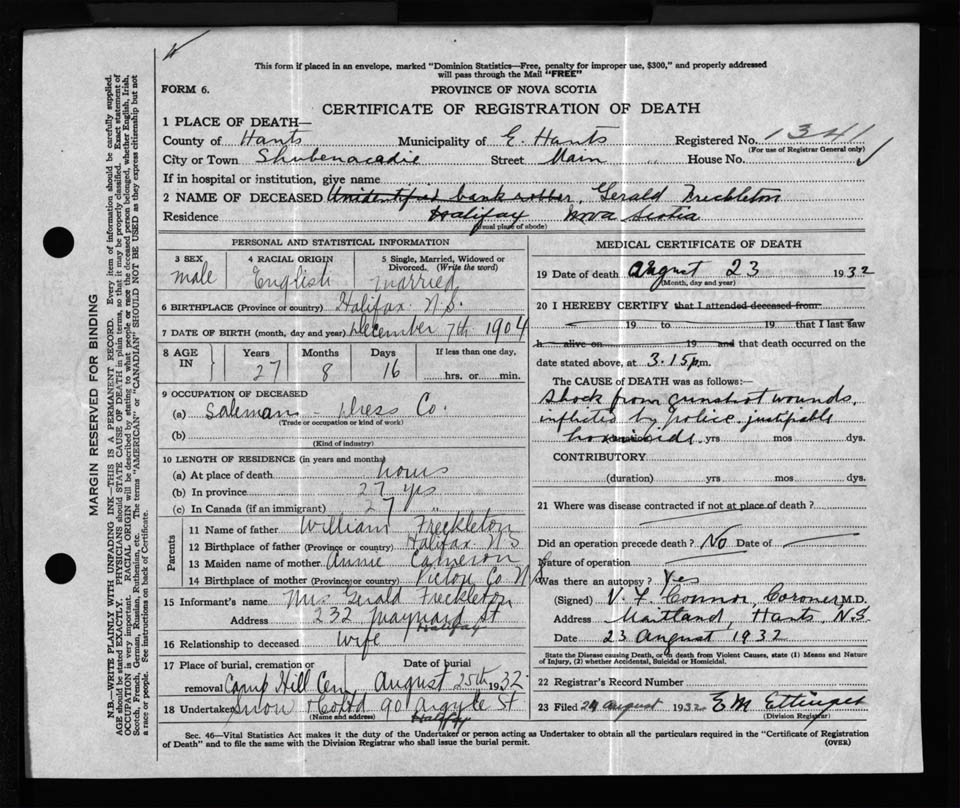 This form if placed in an envelope, marked "Dominion Statistics—Free, penalty for improper use, $300," and properly addressed
will pass through the Mail "FREE"
FORM 6.
PROVINCE OF NOVA SCOTIA
CERTIFICATE OF REGISTRATION OF DEATH
1 PLACE OF DEATH—
County of Hants Municipality of E. Hants Registered No. 1341
(For use of Registrar General only)
City or Town Shubenacadie Street Main House No.
If in hospital or institution, give name
2 NAME OF DECEASED Unidentified bank robber, Gerald Freckleton
Residence Halifax Nova Scotia
(Usual place of abode)
PERSONAL AND STATISTICAL INFORMATION
3 SEX
male
4 RACIAL ORIGIN
English
5 Single, Married, Widowed or
Divorced. (Write the word)
married
6 BIRTHPLACE (Province or country) Halifax N.S.
7 DATE OF BIRTH (month, day and year) December 7th 1904
8 AGE IN
Years Months Days If less than one day,
27 8 16 hrs. or min.
9 OCCUPATION OF DECEASED
(a) Saleman - Dress Co.
(Trade or occupation or kind of work)
(b)
(Kind of industry)
10 LENGTH OF RESIDENCE (in years and months)
(a) At place of death hours
(b) In province 27 yrs
(c) In Canada (if an immigrant) 27 "
Parents
11 Name of father William Freckleton
12 Birthplace of father (Province or country) Halifax N S
13 Maiden name of mother Annie Cameron
14 Birthplace of mother (Province or country) Pictou Co. N.S
15 Informant's name Mrs Gerald Freckleton
Address 232 Maynard St
Halifax
16 Relationship to deceased Wife
17 Place of burial, cremation or Date of burial
removal Camp Hill Cem August 25th 1932
18 Undertaker Snow & Co Ltd 90 Argyle St
(Name and address) Halifax
MEDICAL CERTIFICATE OF DEATH
19 Date of death August 23 1932
(Month, day and year)
20 I HEREBY CERTIFY that I attended deceased from
19 to 19 that I last saw
h alive on 19 and that death occurred on the
date stated above, at 3.15 p.m.
The CAUSE OF DEATH was as follows:—
Shock from gunshot wounds,
inflicted by police. justifiable
homicide. yrs mos dys.
CONTRIBUTORY
(duration) yrs mos dys.
21 Where was disease contracted if not at place of death?
Did an operation precede death? No Date of
Nature of operation
Was there an autopsy? Yes
(Signed) V. F. Connor, Coroner M.D.
Address Maitland, Hants, N.S
Date 23 August 1932
State the Disease causing Death, or in death from Violent Causes, state (1) Means and Nature
of Injury, (2) whether Accidental, Suicidal or Homicidal.
22 Registrar's Record Number
23 Filed 24 August 1932 E M Ettinger
(Division Registrar)
Sec. 46—Vital Statistics Act makes it the duty of the Undertaker or person acting as Undertaker to obtain all the particulars required in the "Certificate of Registration
of Death" and to file the same with the Division Registrar who shall issue the burial permit. (OVER)
MARGIN RESERVED FOR BINDING
N.B.—WRITE PLAINLY WITH UNFADING INK—THIS IS A PERMANENT RECORD. Every item of information should be carefully supplied.
AGE should be stated EXACTLY. PHYSICIANS should STATE CAUSE OF DEATH in plain terms, so that it may be properly classified. Exact statement of
OCCUPATION is very important. RACIAL ORIGIN will be described by stating to what people or race the deceased person belonged, whether English, Irish,
Scotch, French, German, Russian, Ruthenian, etc. The terms "AMERICAN" or "CANADIAN" SHOULD NOT BE USED as they express citizenship but not
a race or people. See instructions on back of Certificate.